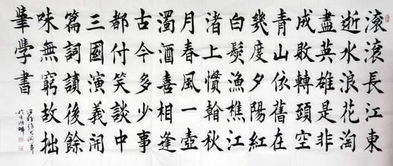 滚滚長江東
逝水浪花淘
盡英雄是非
成敗轉頭空
青山依舊在
幾度夕陽紅
白髮漁樵江
渚上慣看秋
月春風一壺
濁酒喜相逢
古今多少事
都付笑談中
三國演義開
篇詞讀後餘
味無窮故拙
筆學書